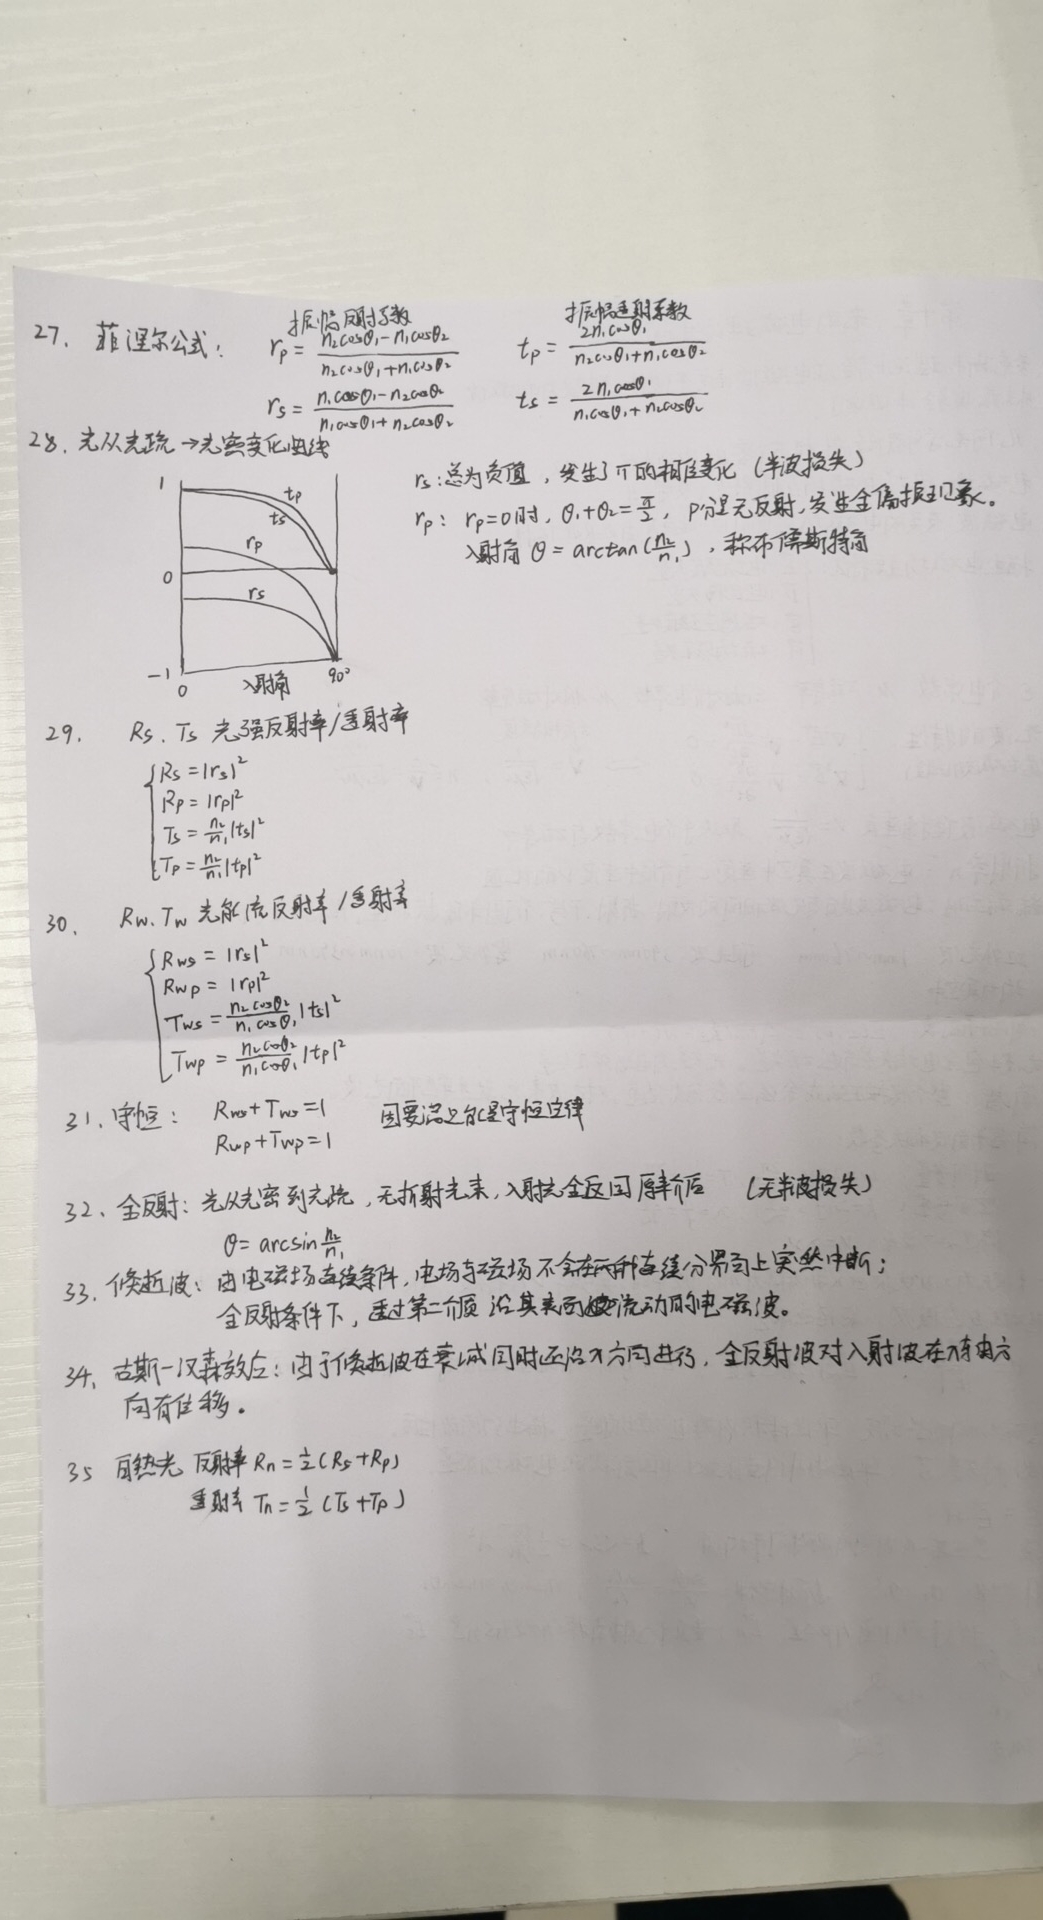 27. 菲涅尔公式: 振幅反射系数 振幅透射系数
rp = (n₂cosθ₁-n₁cosθ₂)/(n₂cosθ₁+n₁cosθ₂) tp = 2n₁cosθ₁/(n₂cosθ₁+n₁cosθ₂)
rs = (n₁cosθ₁-n₂cosθ₂)/(n₁cosθ₁+n₂cosθ₂) ts = 2n₁cosθ₁/(n₁cosθ₁+n₂cosθ₂)
28. 光从光疏→光密变化曲线
1
tp
ts
rp
0
rs
-1
0 入射角 90°
rs: 总为负值, 发生了π的相位变化 (半波损失)
rp: rp=0时, θ₁+θ₂=π/2, P分量无反射, 发生全偏振现象。
入射角 θ=arctan(n₂/n₁), 称布儒斯特角
29. Rs. Ts 光强反射率/透射率
Rs=|rs|²
Rp=|rp|²
Ts=n₂/n₁|ts|²
Tp=n₂/n₁|tp|²
30. Rw. Tw 光能流反射率/透射率
Rws=|rs|²
Rwp=|rp|²
Tws=n₂cosθ₂/n₁cosθ₁|ts|²
Twp=n₂cosθ₂/n₁cosθ₁|tp|²
31. 守恒: Rws+Tws=1 因要满足能量守恒定律
Rwp+Twp=1
32. 全反射: 光从光密到光疏, 无折射光束, 入射光全返回原介质 (无半波损失)
θ=arcsin n₂/n₁
33. 倏逝波: 由电磁场连续条件, 电场与磁场不会在两种连续分界面上突然中断;
全反射条件下, 透过第二介质 沿其表面流动的电磁波。
34. 古斯-汉森效应: 由于倏逝波在衰减同时还沿x方向进行, 全反射波对入射波在x轴方
向有位移。
35 自然光 反射率 Rn=½(Rs+Rp)
透射率 Tn=½(Ts+Tp)